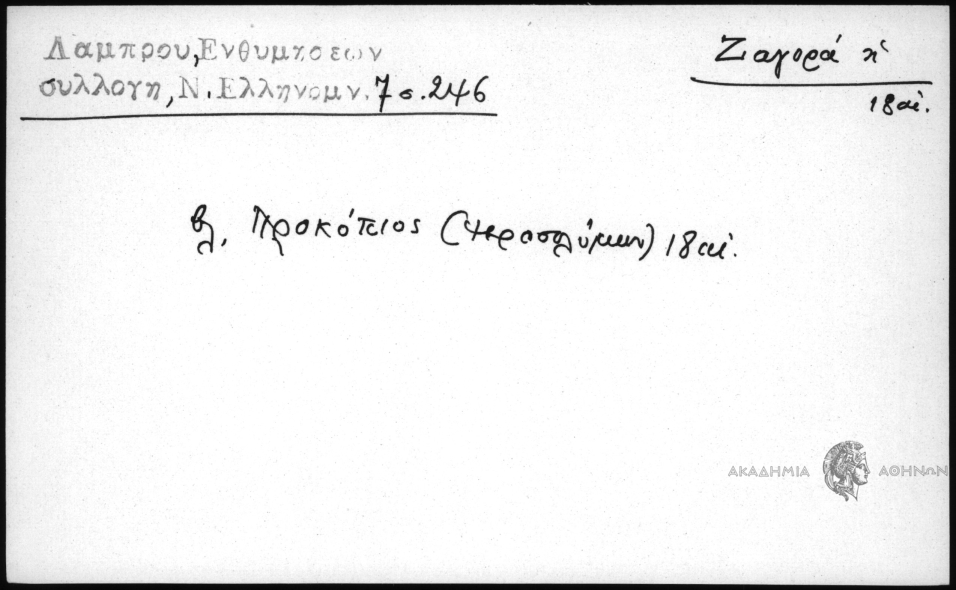 Λαμπρου, Ενθυμησεων
συλλογη, Ν. Ελληνομν. 7 σ. 246
Ζαγορά ἡ
18 αἰ.
βλ. Προκόπιος (Ἱεροσολύμων) 18 αἰ.
ΑΚΑΔΗΜΙΑ ΑΘΗΝΩΝ